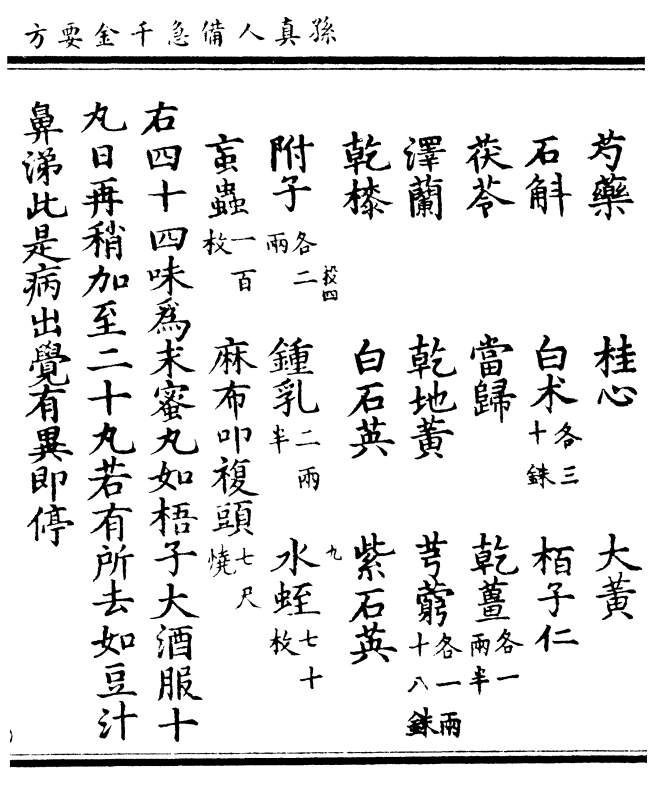 孫真人備急千金要方
芍藥 桂心 大黃
石斛 白朮各三十銖 栢子仁
茯苓 當歸 乾薑各一兩半
澤蘭 乾地黃 芎藭各一兩十八銖
乾㯃 白石英 紫石英
四 九
附子各二兩 鍾乳二兩半 水蛭七十枚
蝱蟲一百枚 麻布叩複頭七尺燒
右四十四味為末蜜丸如梧子大酒服十
丸日再稍加至二十丸若有所去如豆汁
鼻涕此是病出覺有異即停